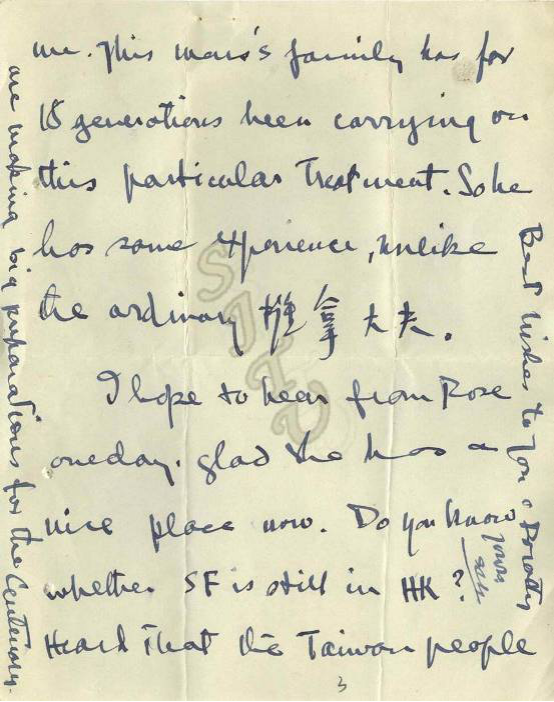 me. This man's family has for
18 generations been carrying on
this particular Treatment. So he
has some experience, unlike
the ordinary 推拿大夫.
I hope to hear from Rose
one day. glad she has a
nice place now. Do you know
whether SF is still in HK?
Heard that the Taiwan people
are making big preparations for the Centenary.
Best wishes to you & Dorothy
yours
3